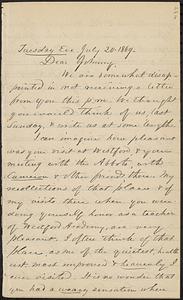 Tuesday Eve July 20. 1869.
Dear Johnny.
We are somewhat disap-
pointed in not receiving a letter
from you this p.m. We thought
you would think of us, last
Sunday, & write us at some length.
I can imagine how pleasant
was your visit at Westford & your
meeting with the Abbots, with
Cameron & other friends there. My
recollections of that place & of
my visits there when you were
doing yourself honor as a teacher
of Westford Academy, are very
pleasant. I often think of that
place as one of the quietest, health
iest, most improved & heavenly I
ever visited. It is no wonder that
you had a sensation when